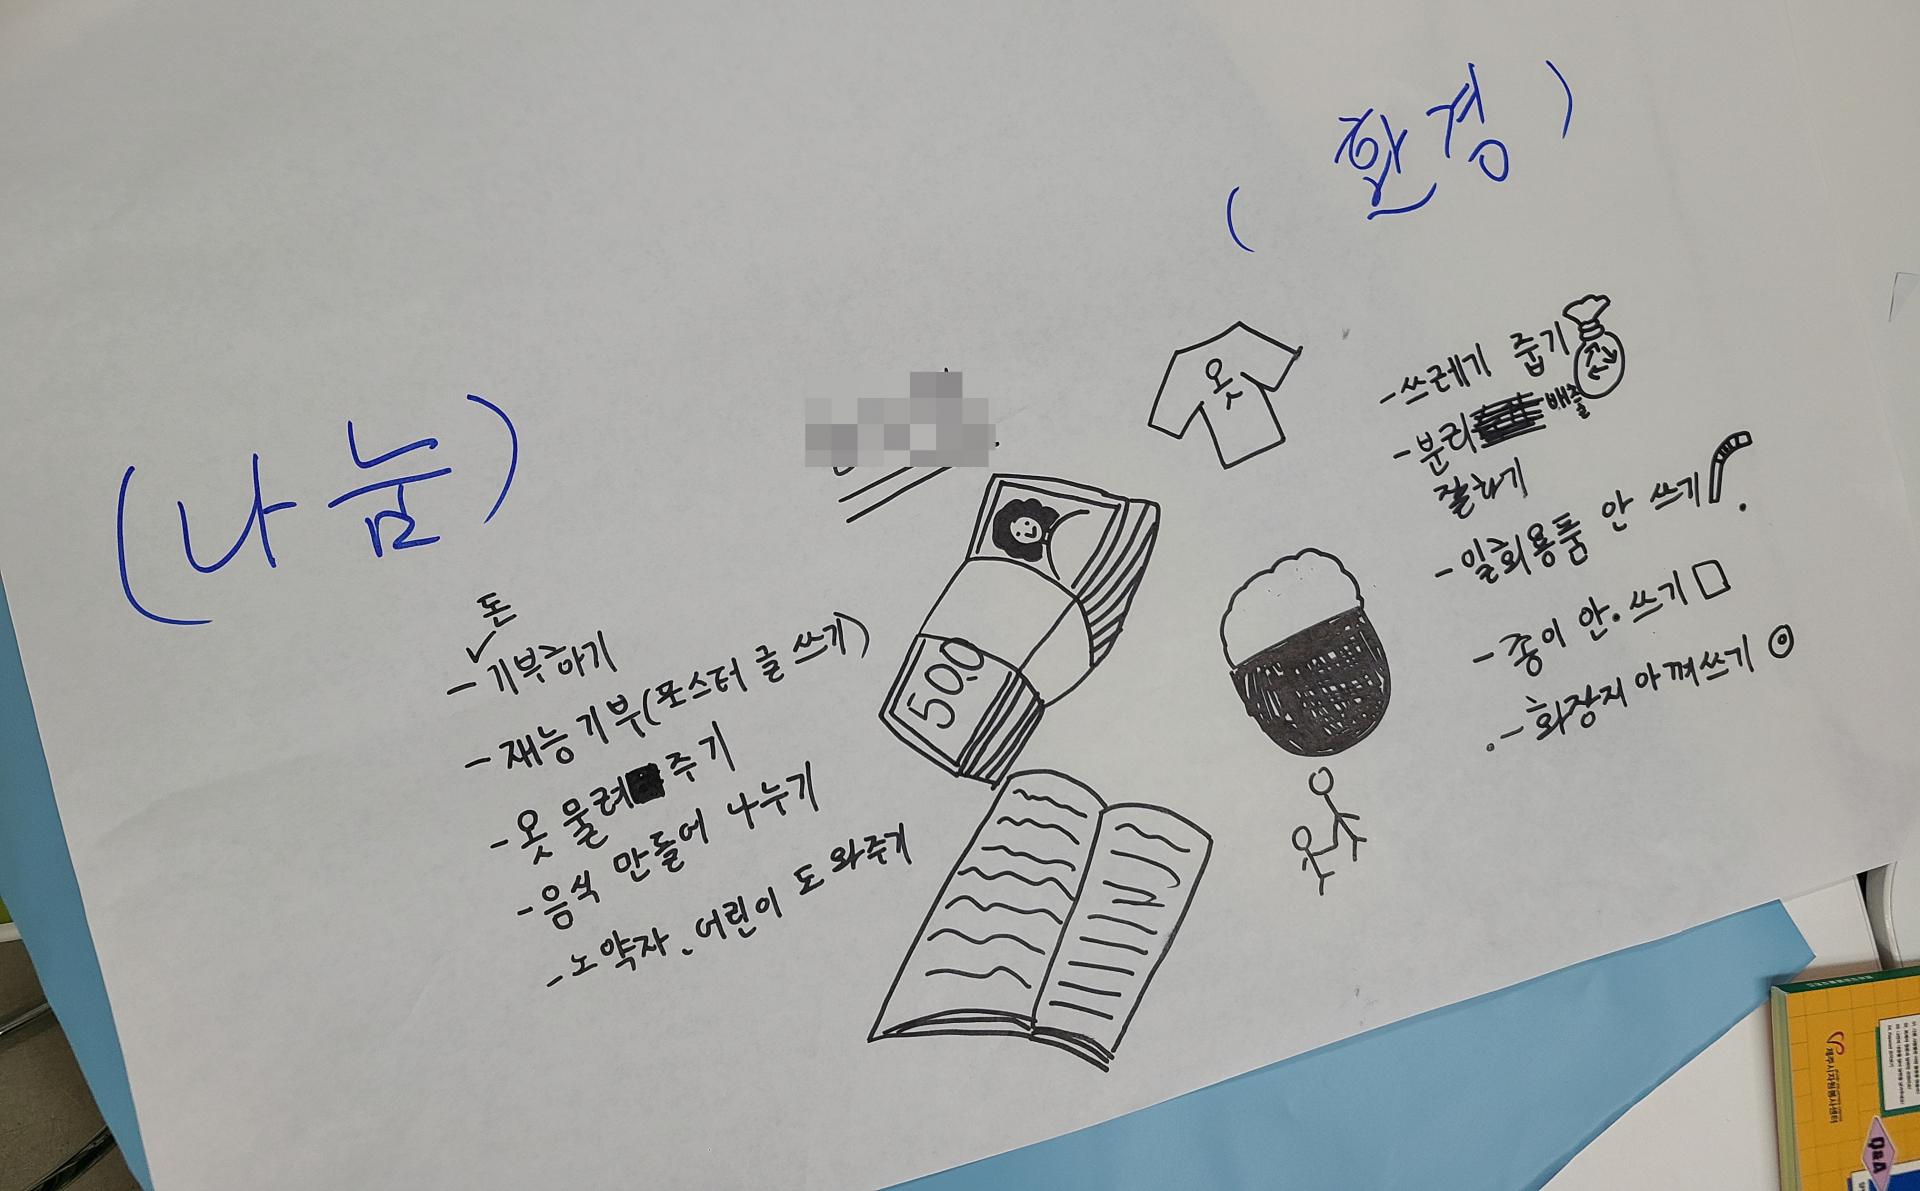 (나눔)
돈
- 기부하기
- 재능기부(포스터 글 쓰기)
- 옷 물려주기
- 음식 만들어 나누기
- 노약자.어린이 도와주기
옷
500
(환경)
- 쓰레기 줍기
- 분리 배출
잘하기
- 일회용품 안 쓰기
- 종이 안 쓰기
- 화장지 아껴쓰기
제주시자원봉사센터
Q&A